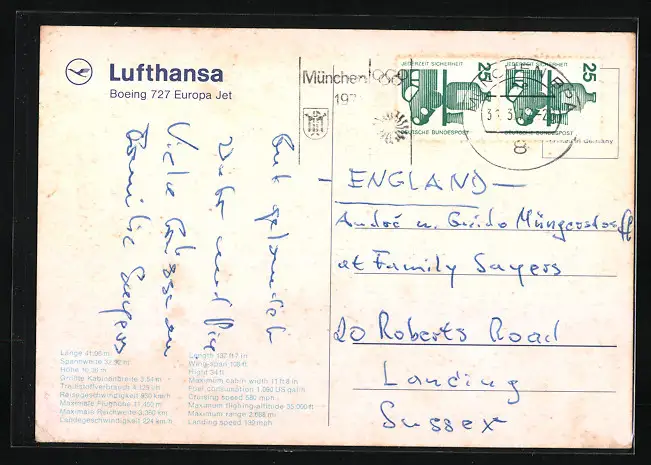 Lufthansa
Boeing 727 Europa Jet
München
197
JEDERZEIT SICHERHEIT
25
DEUTSCHE BUNDESPOST
JEDERZEIT SICHERHEIT
25
DEUTSCHE BUNDESPOST
8
Gut gelandet
Viele
Familie Sayers
- ENGLAND -
André u. Guido Müngersdorff
at Family Sayers
20 Roberts Road
Lancing
Sussex
Länge 41,06 m
Spannweite 32,92 m
Höhe 10,36 m
Größte Kabinenbreite 3,54 m
Reisegeschwindigkeit 930 km/h
Maximale Flughöhe
Maximale Reichweite
Landegeschwindigkeit 224 km/h
Length 137 ft 7 in
Wing span 108 ft
Hight 34 ft
Maximum cabin width 11 ft 8 in
Fuel consumption
Cruising speed 580 mph
Maximum flighing-altitude 35,000 ft
Maximum range
Landing speed 139 mph